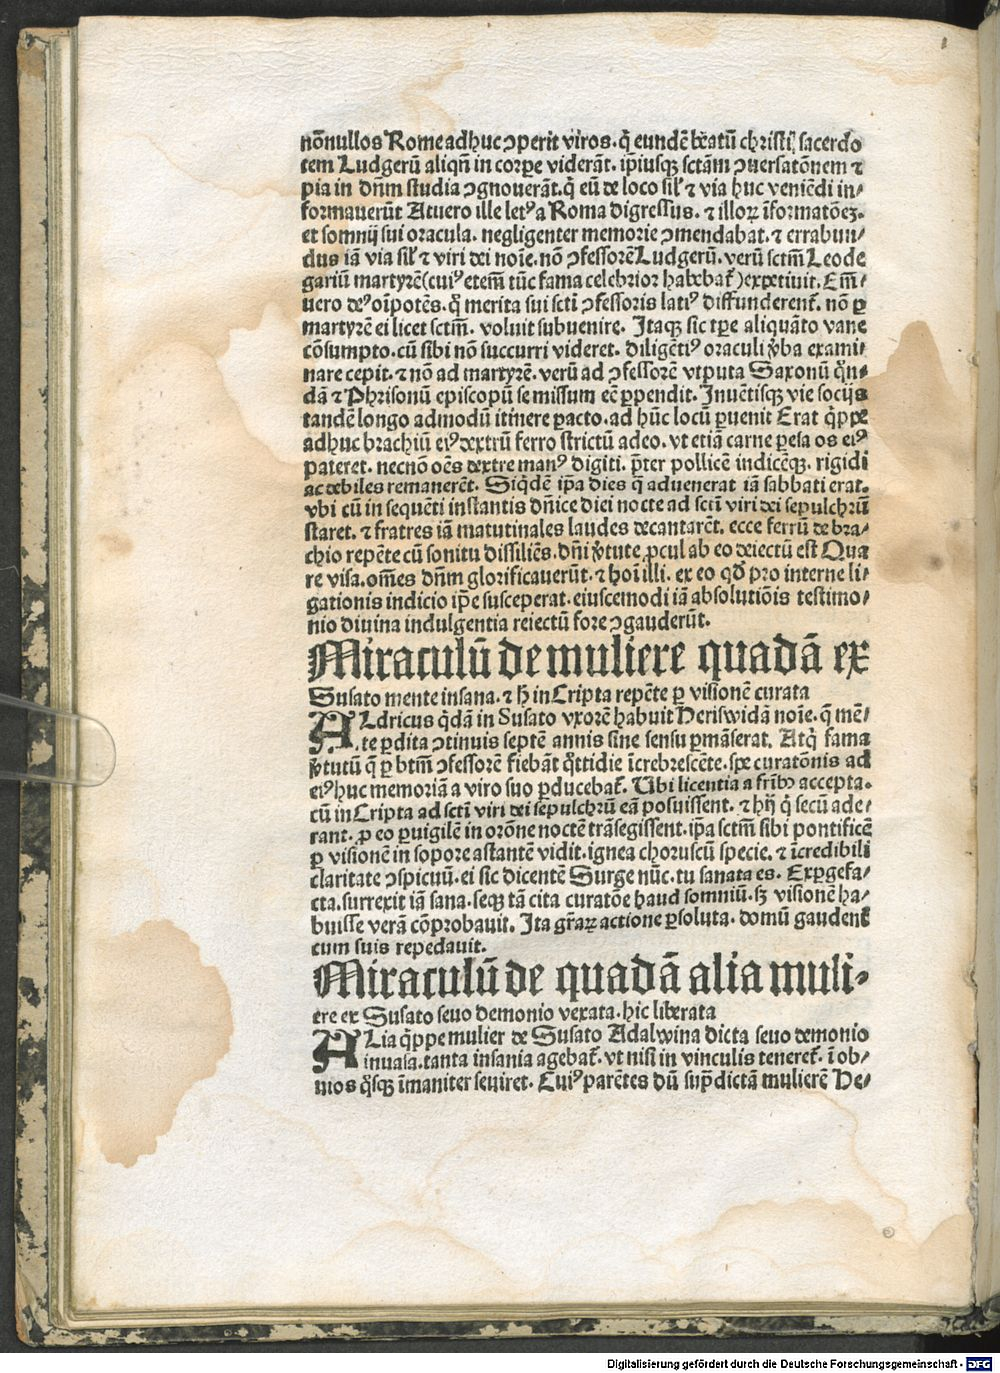 nōnullos Rome adhuc ꝯperit viros. q̇ eundē br̄atū christi sacerdo
tem Ludgerū aliqn̄ in corꝑe viderāt. ip̄iusqꝫ sctām ꝯuersatōnem ⁊
pia in dn̄m studia ꝯgnouerāt. q̇ eū de loco sil' ⁊ via huc veniēdi in⸗
formauerūt Atuero ille letꝰ a Roma digressus. ⁊ illoꝝ īformatōeꝫ.
et somnij sui oracula. negligenter memorie ꝯmendabat. ⁊ errabun⸗
dus iā via sil' ⁊ viri dei noīe. nō ꝯfessorē Ludgerū. verū sctm̄ Leode
gariū martyrē (cuiꝰ etem̄ tūc fama celebrior habebat̄) expetiuit. Em̄
uero deꝰ oīpotēs. q̇ merita sui scti ꝯfessoris latiꝰ diffunderent̄. nō ꝑ
martyrē ei licet sctm̄. voluit subuenire. Itaqꝫ sic tꝑe aliquāto vane
cōsumpto. cū sibi nō succurri videret. diligētiꝰ oraculi ṽba exami⸗
nare cepit. ⁊ nō ad martyrē. verū ad ꝯfessorē vtputa Saxonū q̄n⸗
dā ⁊ Phrisonū episcopū se missum eē ꝑpendit. Inuētisqꝫ vie socijs
tandē longo admodū itinere ꝑacto. ad hūc locū ꝑuenit Erat q̇ppe
adhuc brachiū eiꝰ dextrū ferro strictū adeo. vt etiā carne ꝑesa os eiꝰ
pateret. necnō oēs dextre manꝰ digiti. p̄ter pollicē indicēqꝫ. rigidi
ac debiles remanerēt. Siq̇dē ip̄a dies q̄ aduenerat iā sabbati erat.
vbi cū in sequēti instantis dn̄ice diei nocte ad scti viri dei sepulchrū
staret. ⁊ fratres iā matutinales laudes decantarēt. ecce ferrū de bra⸗
chio repēte cū sonitu dissiliēs. dn̄i ṽtute ꝓcul ab eo deiectū est Qua
re visa. oēs dn̄m glorificauerūt. ⁊ hoī illi. ex eo qd̄ pro interne li⸗
gationis indicio ip̄e susceperat. eiuscemodi iā absolutiōis testimo⸗
nio diuina indulgentia reiectū fore ꝯgauderūt.
Miraculū de muliere quadā ex
Susato mente insana. ⁊ h̄ in Cripta repēte ꝑ visionē curata
ALdricus q̇dā in Susato vxorē habuit Heriswidā noīe. q̄ mē⸗
te ꝑdita ꝯtinuis septē annis sine sensu ꝑmāserat. Atq̇ fama
ṽtutū q̄ ꝑ btm̄ ꝯfessorē fiebāt q̇ttidie īcrebrescēte. spe curatōnis ad
eiꝰ huc memoriā a viro suo ꝑducebat̄. Ubi licentia a fr̄ibꝰ accepta.
cū in Cripta ad scti viri dei sepulchrū eā posuissent. ⁊ hij q̇ secū ade⸗
rant. ꝓ eo ꝑuigilē in orōne noctē trāsegissent. ip̄a sctm̄ sibi pontificē
ꝑ visionē in sopore astantē vidit. ignea choruscū specie. ⁊ īcredibili
claritate ꝯspicuū. ei sic dicentē Surge nūc. tu sanata es. Exꝑgefa⸗
cta. surrexit iā sana. seqꝫ tā cita curatōe haud somniū. sꝫ visionē ha⸗
buisse verā cōprobauit. Ita gr̄aꝝ actione ꝑsoluta. domū gaudens
cum suis repedauit.
Miraculū de quadā alia muli⸗
ere ex Susato seuo demonio vexata. hic liberata
ALia q̇ppe mulier de Susato Adalwina dicta seuo demonio
inuasa. tanta insania agebat̄. vt nisi in vinculis teneret̄. ī ob⸗
uios q̇sqꝫ īmaniter seuiret. Cuiꝰ parētes dū sup̄dictā mulierē He⸗
Digitalisierung gefördert durch die Deutsche Forschungsgemeinschaft - DFG